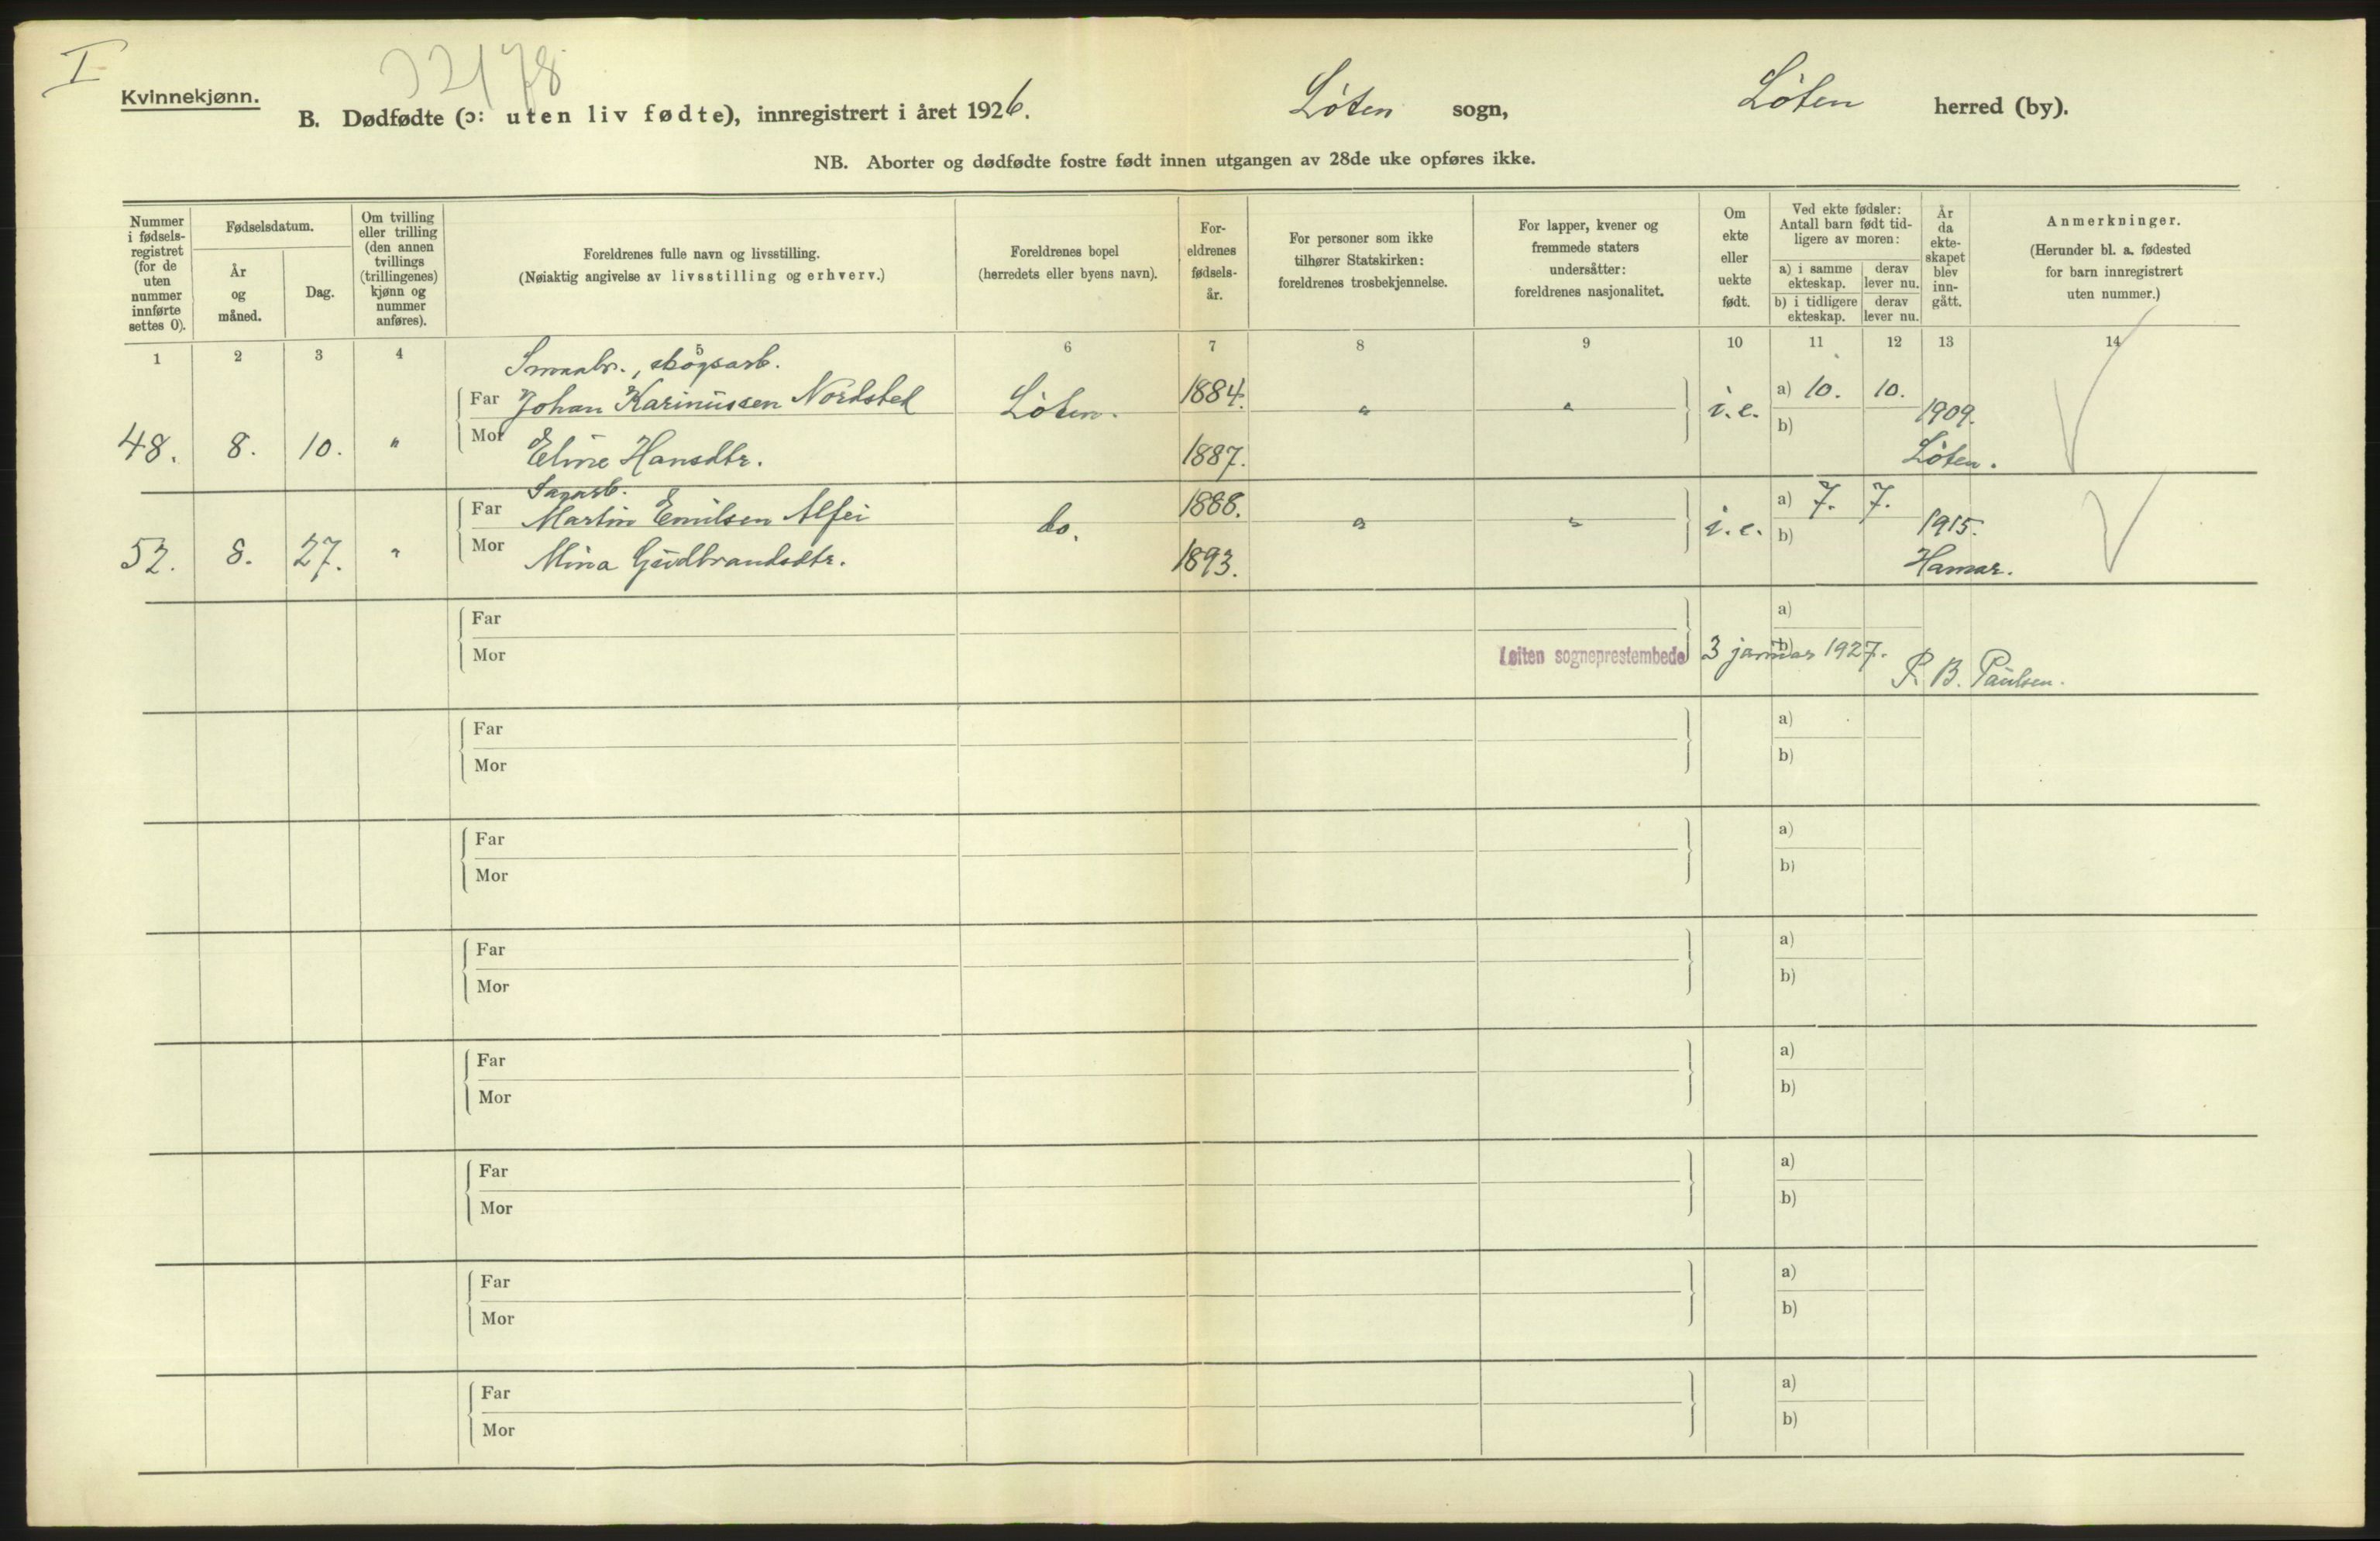 I
32178
Kvinnekjønn.
B. Dødfødte (ɔ: uten liv fødte), innregistrert i året 1926. Løten sogn, Løten herred (by).
NB. Aborter og dødfødte fostre født innen utgangen av 28de uke opføres ikke.
Nummer i fødsels-registret (for de uten nummer innførte settes 0).
Fødselsdatum.
År og måned.
Dag.
Om tvilling eller trilling (den annen tvillings (trillingenes) kjønn og nummer anføres).
Foreldrenes fulle navn og livsstilling.
(Nøiaktig angivelse av livsstilling og erhverv.)
Foreldrenes bopel
(herredets eller byens navn).
For-eldrenes fødsels-år.
For personer som ikke tilhører Statskirken: foreldrenes trosbekjennelse.
For lapper, kvener og fremmede staters undersåtter: foreldrenes nasjonalitet.
Om ekte eller uekte født.
Ved ekte fødsler: Antall barn født tid-ligere av moren:
a) i samme ekteskap. derav lever nu.
b) i tidligere ekteskap. derav lever nu.
År da ekte-skapet blev inn-gått.
Anmerkninger.
(Herunder bl. a. fødested for barn innregistrert uten nummer.)
1 2 3 4 5 6 7 8 9 10 11 12 13 14
Smaabr., skogsarb.
Far Johan Karinussen Nordsted Løten. 1884. " " i.e. a) 10. 10. 1909.
48. 8. 10. " Mor Eline Hansdtr. 1887. b) Løten.
Sagarb.
Far Martin Emilsen Alfei do. 1888. " " i.e. a) 7. 7. 1915.
52. 8. 27. " Mor Mina Gudbrandsdtr. 1893. b) Hamar.
Far a)
Mor b)
Løiten sogneprestembede 3 januar 1927. P. B. Paulsen.
Far a)
Mor b)
Far a)
Mor b)
Far a)
Mor b)
Far a)
Mor b)
Far a)
Mor b)
Far a)
Mor b)
Far a)
Mor b)